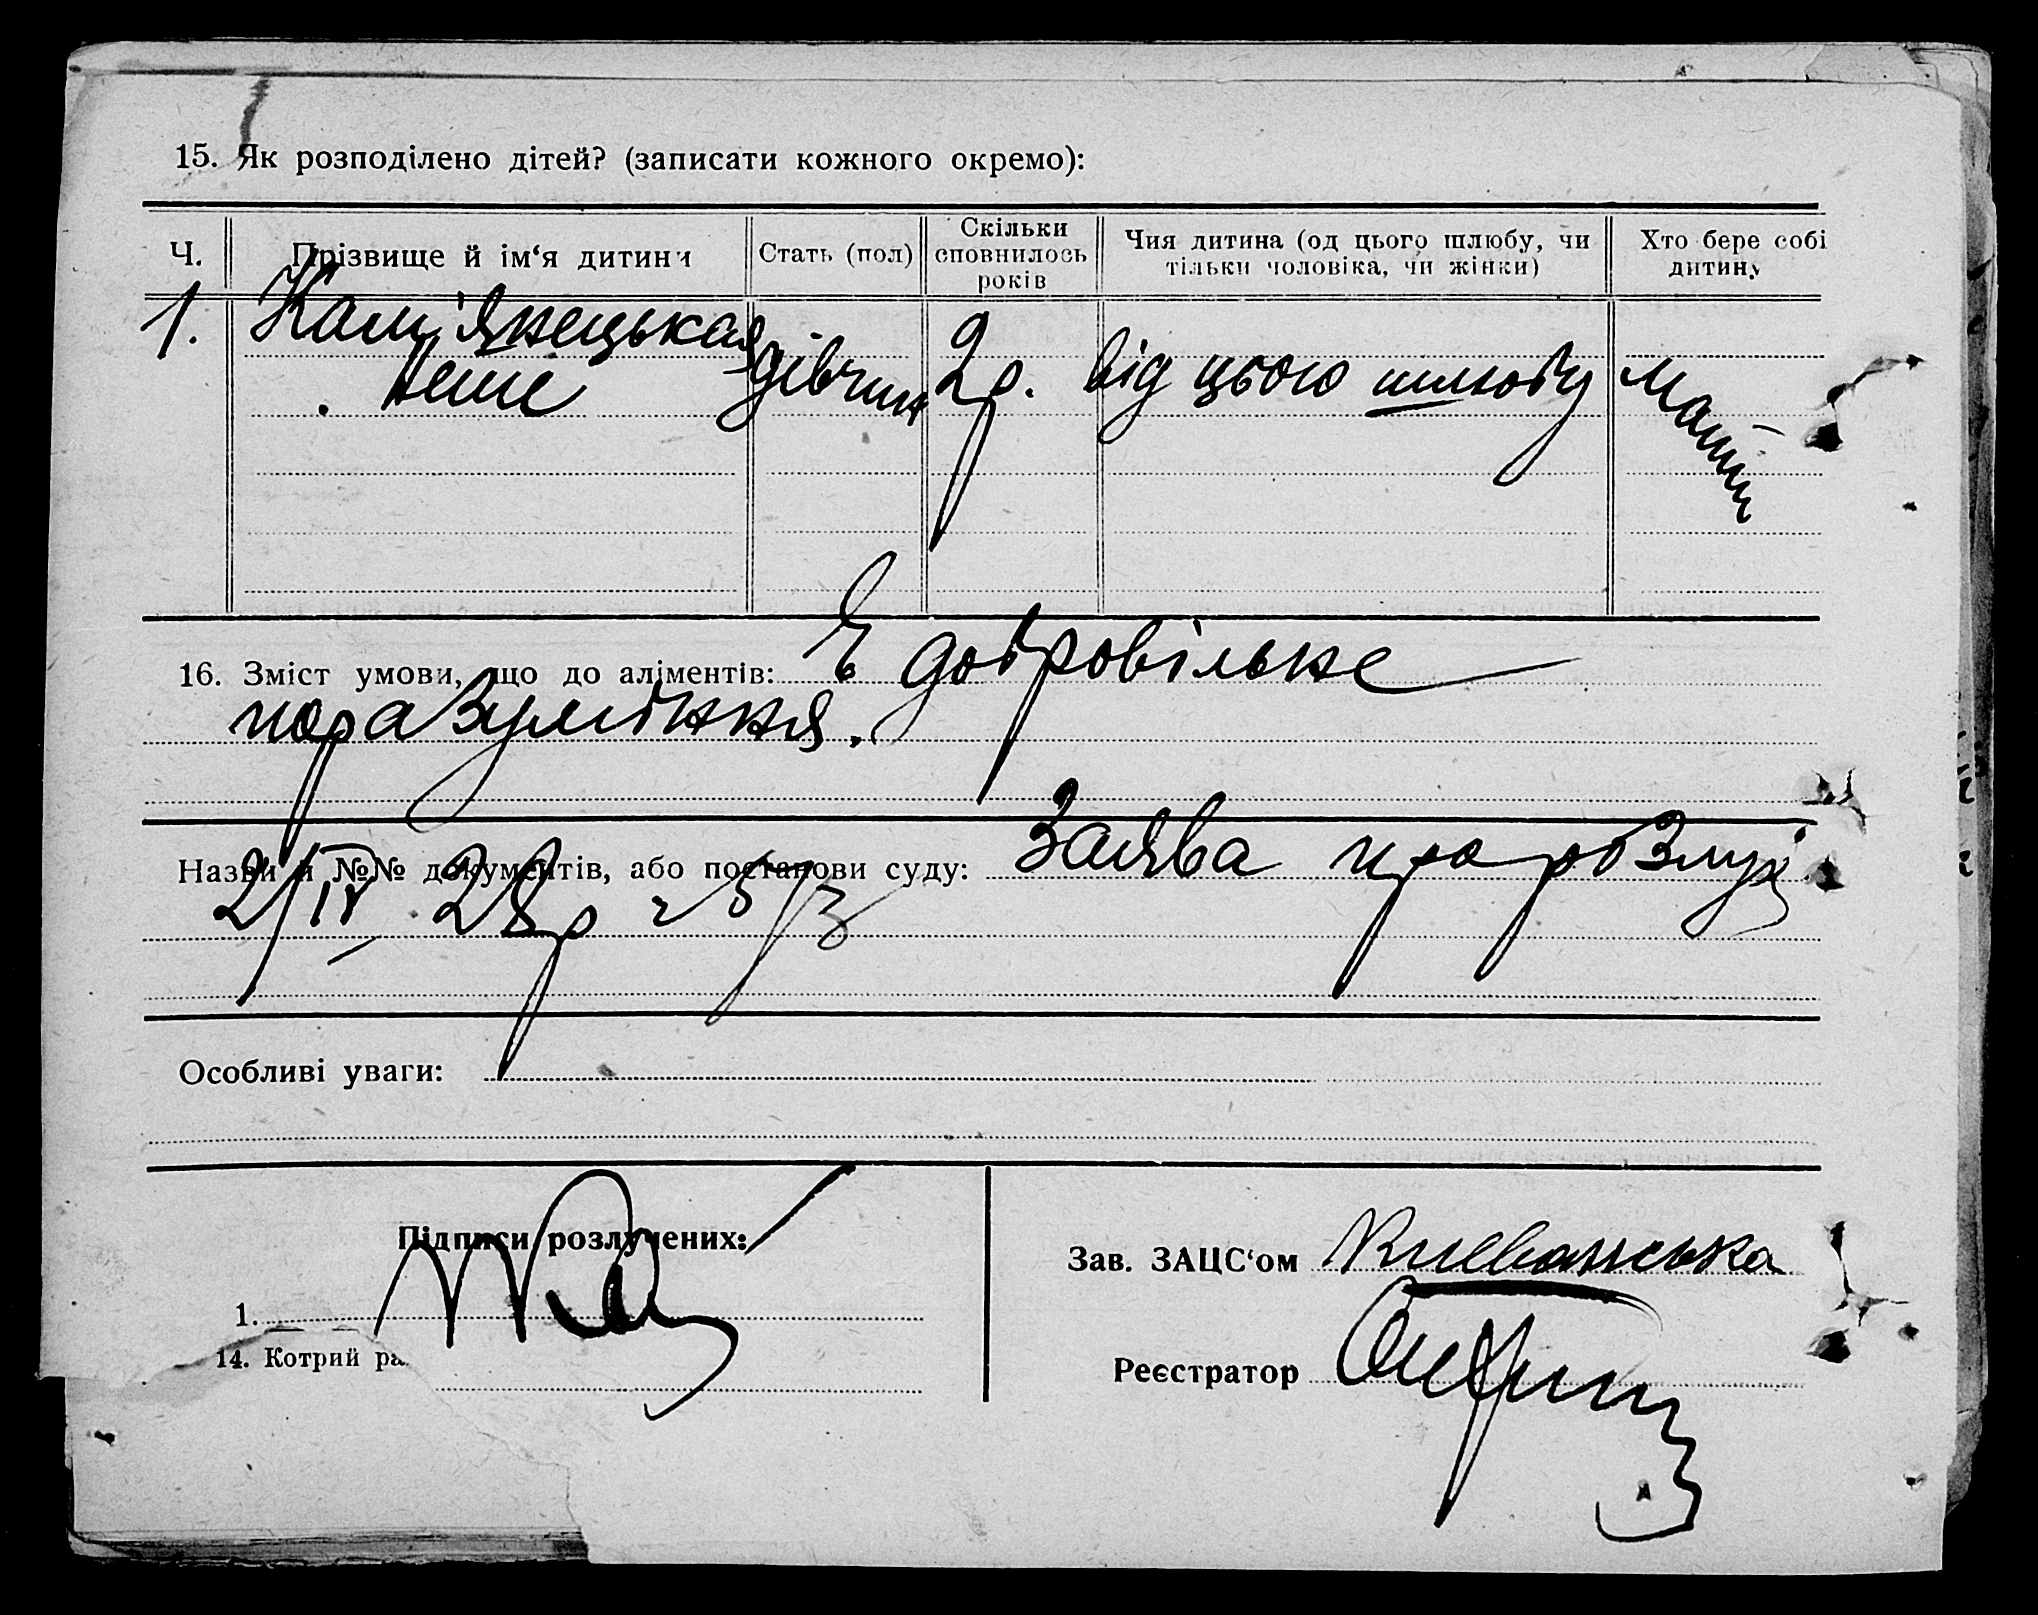 15. Як розподілено дітей? (записати кожного окремо):
Ч. Прізвище й ім'я дитини Стать (пол) Скільки сповнилось років Чия дитина (од цього шлюбу, чи тільки чоловіка, чи жінки) Хто бере собі дитину
1. Кам'янецькая дівчин 2р. від цього шлюбу мати
Неше
16. Зміст умови, що до аліментів: Є добровільне
поразуміння.
Назви й №№ документів, або постанови суду: Заява про розлуч
2/IV 28р
Особливі уваги:
Підписи розлучених:
Зав. ЗАЦС'ом
1.
14. Котрий ра
Реєстратор